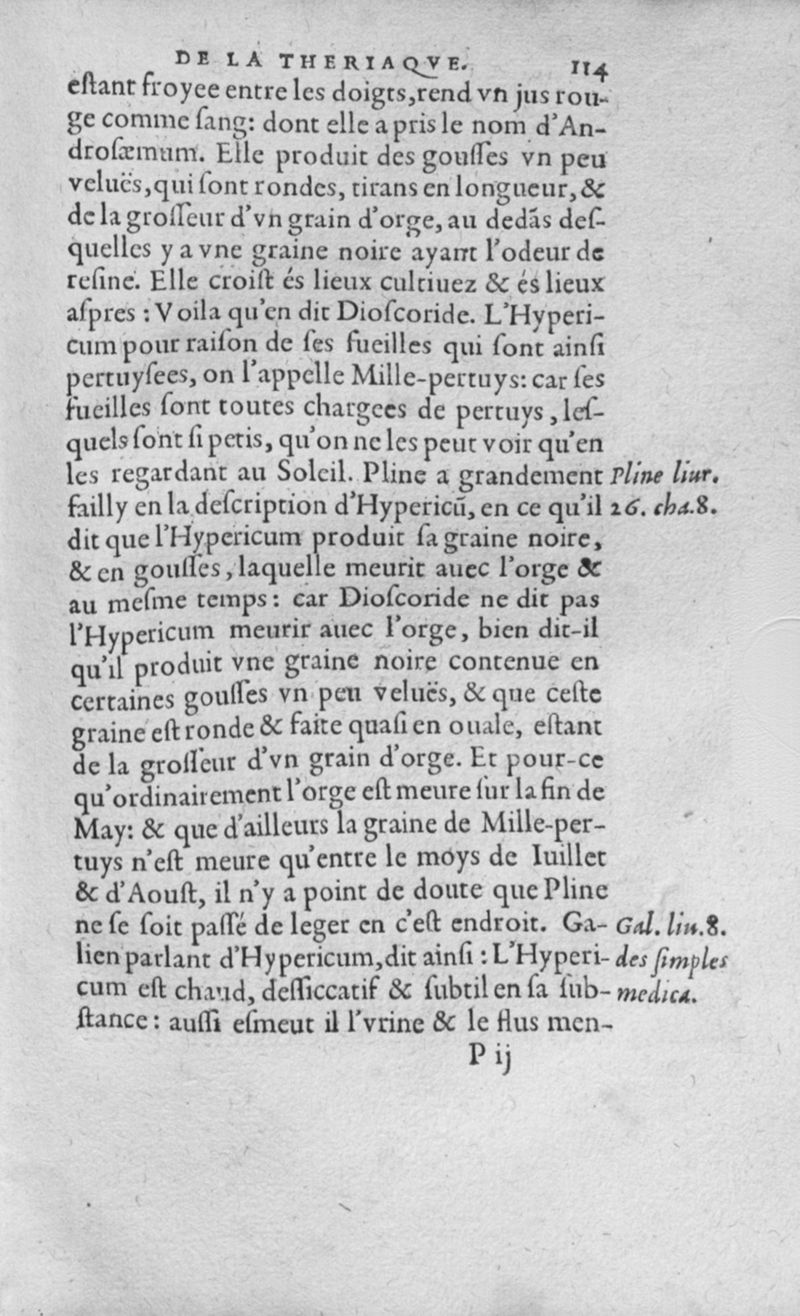 DE LA THERIAQVE. 114
eſtant froyee entre les doigts, rend vn jus rou-
ge comme ſang: dont elle a pris le nom d'An-
droſæmum. Elle produit des gouſſes vn peu
veluës, qui ſont rondes, tirans en longueur, &
de la groſſeur d'vn grain d'orge, au dedãs deſ-
quelles y a vne graine noire ayant l'odeur de
reſine. Elle croiſt és lieux cultiuez & és lieux
aſpres : Voila qu'en dit Dioſcoride. L'Hyperi-
cum pour raiſon de ſes fueilles qui ſont ainſi
pertuyſees, on l'appelle Mille-pertuys: car ſes
fueilles ſont toutes chargees de pertuys, leſ-
quels ſont ſi petis, qu'on ne les peut voir qu'en
les regardant au Soleil. Pline a grandement Pline liur.
failly en la deſcription d'Hypericũ, en ce qu'il 26. cha.8.
dit que l'Hypericum produit ſa graine noire,
& en gouſſes, laquelle meurit auec l'orge &
au meſme temps: car Dioſcoride ne dit pas
l'Hypericum meurir auec l'orge, bien dit-il
qu'il produit vne graine noire contenue en
certaines gouſſes vn peu veluës, & que ceſte
graine eſt ronde & faite quaſi en ouale, eſtant
de la groſſeur d'vn grain d'orge. Et pour-ce
qu'ordinairement l'orge eſt meure ſur la fin de
May: & que d'ailleurs la graine de Mille-per-
tuys n'eſt meure qu'entre le moys de Iuillet
& d'Aouſt, il n'y a point de doute que Pline
ne ſe ſoit paſſé de leger en c'eſt endroit. Ga- Gal. liu.8.
lien parlant d'Hypericum, dit ainſi : L'Hyperi- des ſimples
cum eſt chaud, deſſiccatif & ſubtil en ſa ſub- medica.
ſtance: auſſi eſmeut il l'vrine & le flus men-
P ij